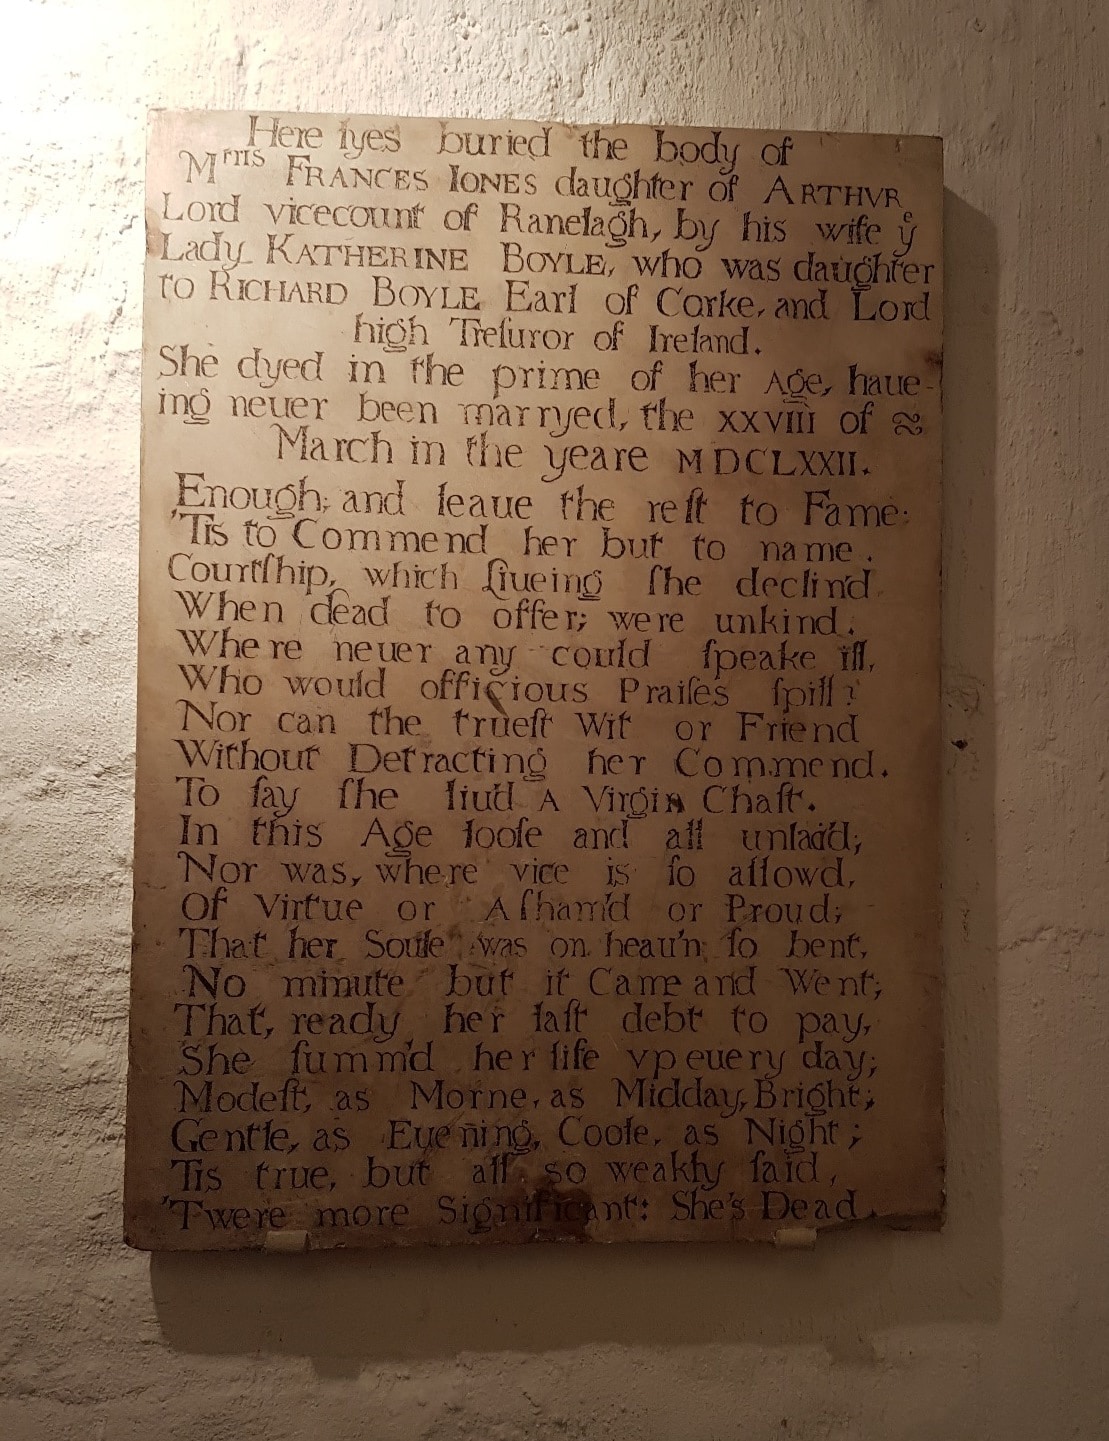 Here lyes buried the body of
Mʳⁱˢ FRANCES IONES daughter of ARTHVR
Lord vicecount of Ranelagh, by his wife yᵉ
Lady KATHERINE BOYLE, who was daughter
to RICHARD BOYLE Earl of Corke, and Lord
high Treſuror of Ireland.
She dyed in the prime of her Age, haue-
ing neuer been marryed, the XXVIII of
March in the yeare MDCLXXII.
Enough; and leaue the reſt to Fame:
'Tis to Commend her but to name.
Courtſhip, which Liueing ſhe declin'd
When dead to offer; were unkind.
Where neuer any could ſpeake ill,
Who would officious Praiſes ſpill?
Nor can the trueſt Wit or Friend
Without Detracting her Commend.
To ſay ſhe liu'd A Virgin Chaſt.
In this Age looſe and all unlac'd;
Nor was, where vice is ſo allowd,
Of Virtue or Aſham'd or Proud;
That her Soule was on heau'n ſo bent,
No minute but it Came and Went;
That, ready her laſt debt to pay,
She ſumm'd her life vp euery day;
Modeſt, as Morne, as Midday, Bright;
Gentle, as Euening, Coole, as Night;
'Tis true, but all so weakly ſaid,
'Twere more Significant: She's Dead.